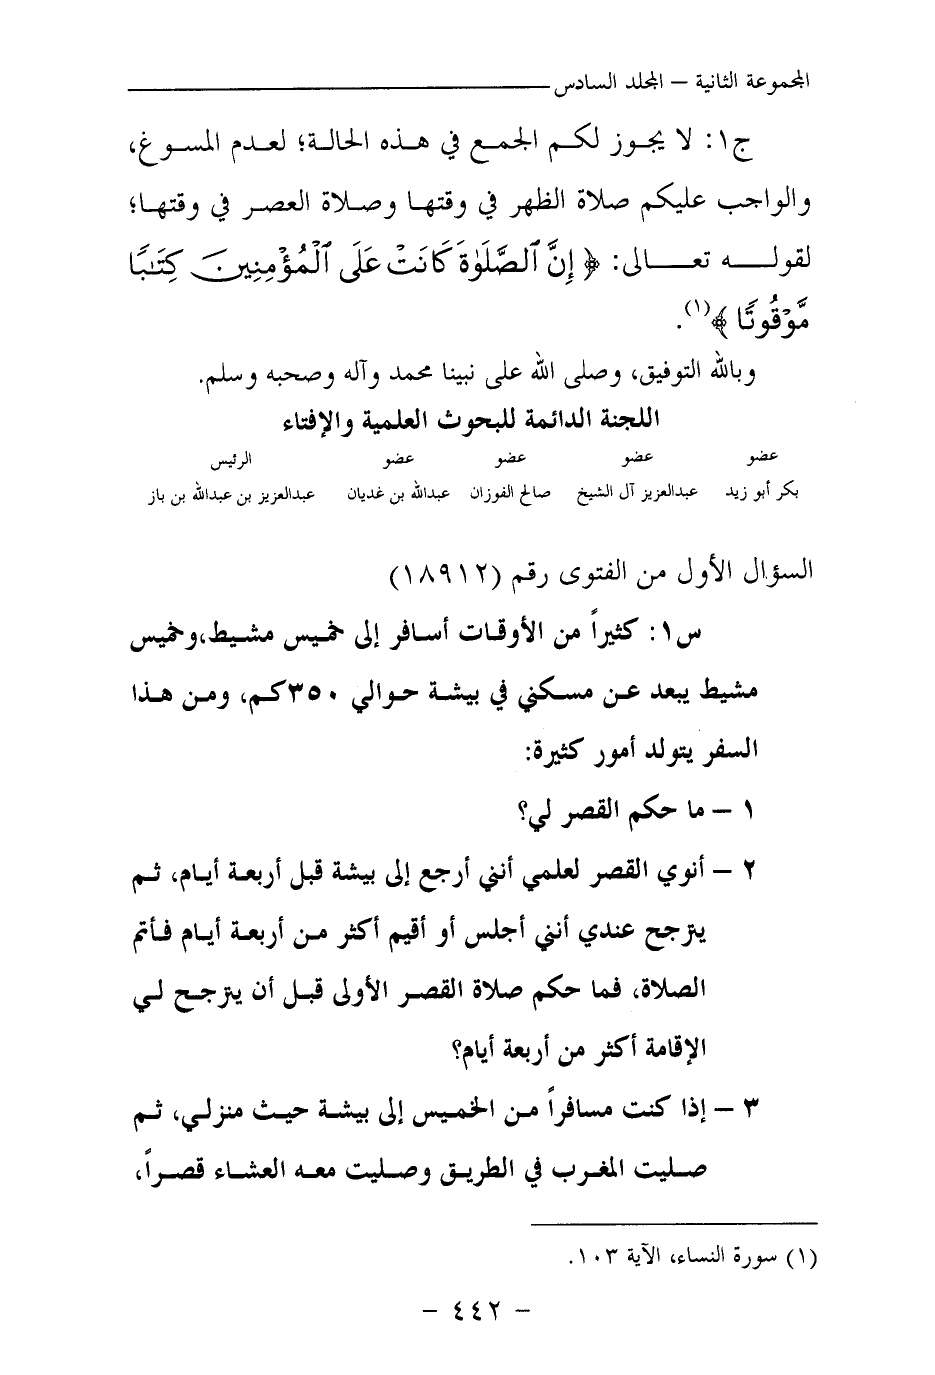 المجموعة الثانية – المجلد السادس
ج١: لا يجوز لكم الجمع في هذه الحالة؛ لعدم المسوغ،
والواجب عليكم صلاة الظهر في وقتها وصلاة العصر في وقتها؛
لقوله تعالى: ﴿ إِنَّ ٱلصَّلَوٰةَ كَانَتْ عَلَى ٱلْمُؤْمِنِينَ كِتَٰبًا
مَّوْقُوتًا ﴾(١).
وبالله التوفيق، وصلى الله على نبينا محمد وآله وصحبه وسلم.
اللجنة الدائمة للبحوث العلمية والإفتاء
عضو عضو عضو عضو الرئيس
بكر أبو زيد عبدالعزيز آل الشيخ صالح الفوزان عبدالله بن غديان عبدالعزيز بن عبدالله بن باز
السؤال الأول من الفتوى رقم (١٨٩١٢)
س١: كثيراً من الأوقات أسافر إلى خميس مشيط،وخميس
مشيط يبعد عن مسكني في بيشة حوالي ٣٥٠كم، ومن هذا
السفر يتولد أمور كثيرة:
١ – ما حكم القصر لي؟
٢ – أنوي القصر لعلمي أنني أرجع إلى بيشة قبل أربعة أيام، ثم
يترجح عندي أنني أجلس أو أقيم أكثر من أربعة أيام فأتم
الصلاة، فما حكم صلاة القصر الأولى قبل أن يترجح لي
الإقامة أكثر من أربعة أيام؟
٣ – إذا كنت مسافراً من الخميس إلى بيشة حيث منزلي، ثم
صليت المغرب في الطريق وصليت معه العشاء قصراً،
(١) سورة النساء، الآية ١٠٣.
– ٤٤٢ –